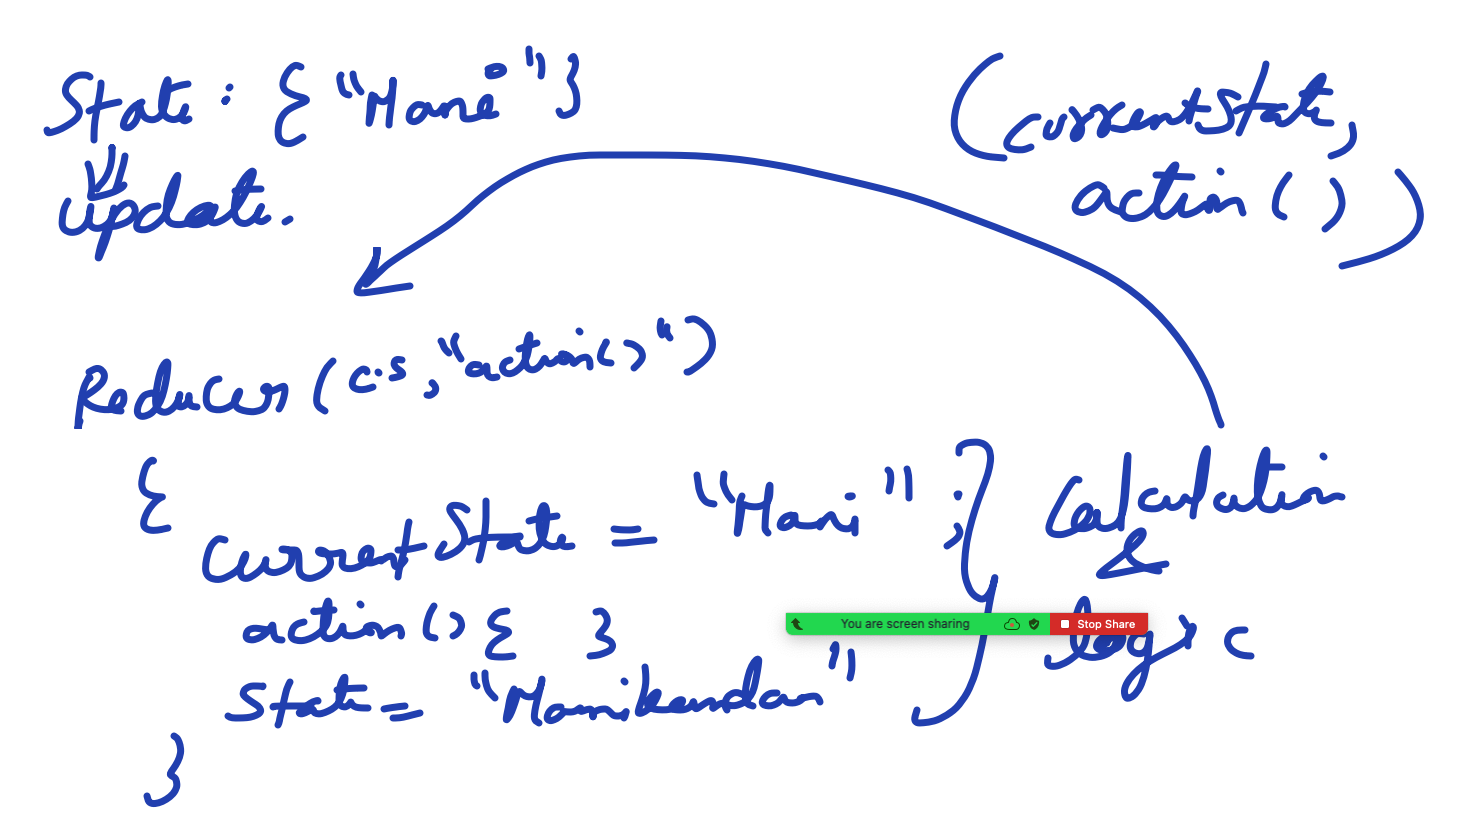 State : { "Mani" }
update.
(currentState,
action ( ) )
Reducer ( c.s , "action()" )
{
currentState = "Mani" ;
action () { }
State = "Manikandan"
}
Calculation
&
logic
You are screen sharing Stop Share